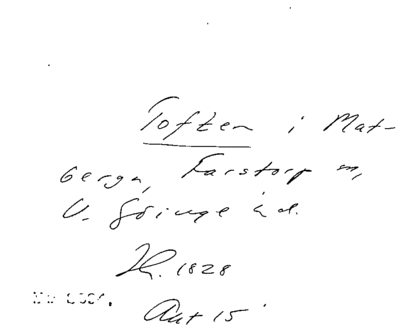 Toften i Mat-
berga, Farstorp sn,
V. Göinge hd.
1828
Ant 15